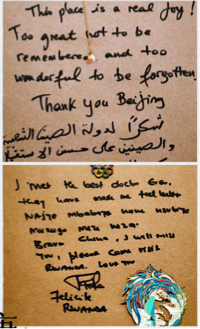 This place is a real Joy!
Too great not to be
remembered and too
wonderful to be forgotten.
Thank you Beijing
شكرًا لدولة الصين الشقيقة
والصينيين على حسن الاستقبال
I met the best doctor Ever,
they have made me feel better
Bravo China, I will miss
You, please come visit
Rwanda. Love you
Felicite
RWANDA